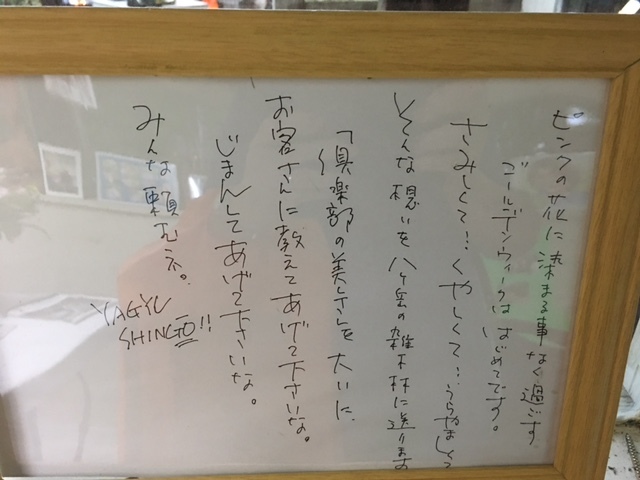 ピンクの花に染まる事なく過ごす
ゴールデンウィークははじめてです。
さみしくて…くやしくて…うらやましくって
そんな想いを八ヶ岳の雑木林に送ります
「倶楽部の美しさを大いに
お客さんに教えてあげて下さいな。
じまんしてあげて下さいな。
みんな頼むネ。
YAGYU
SHINGO!!